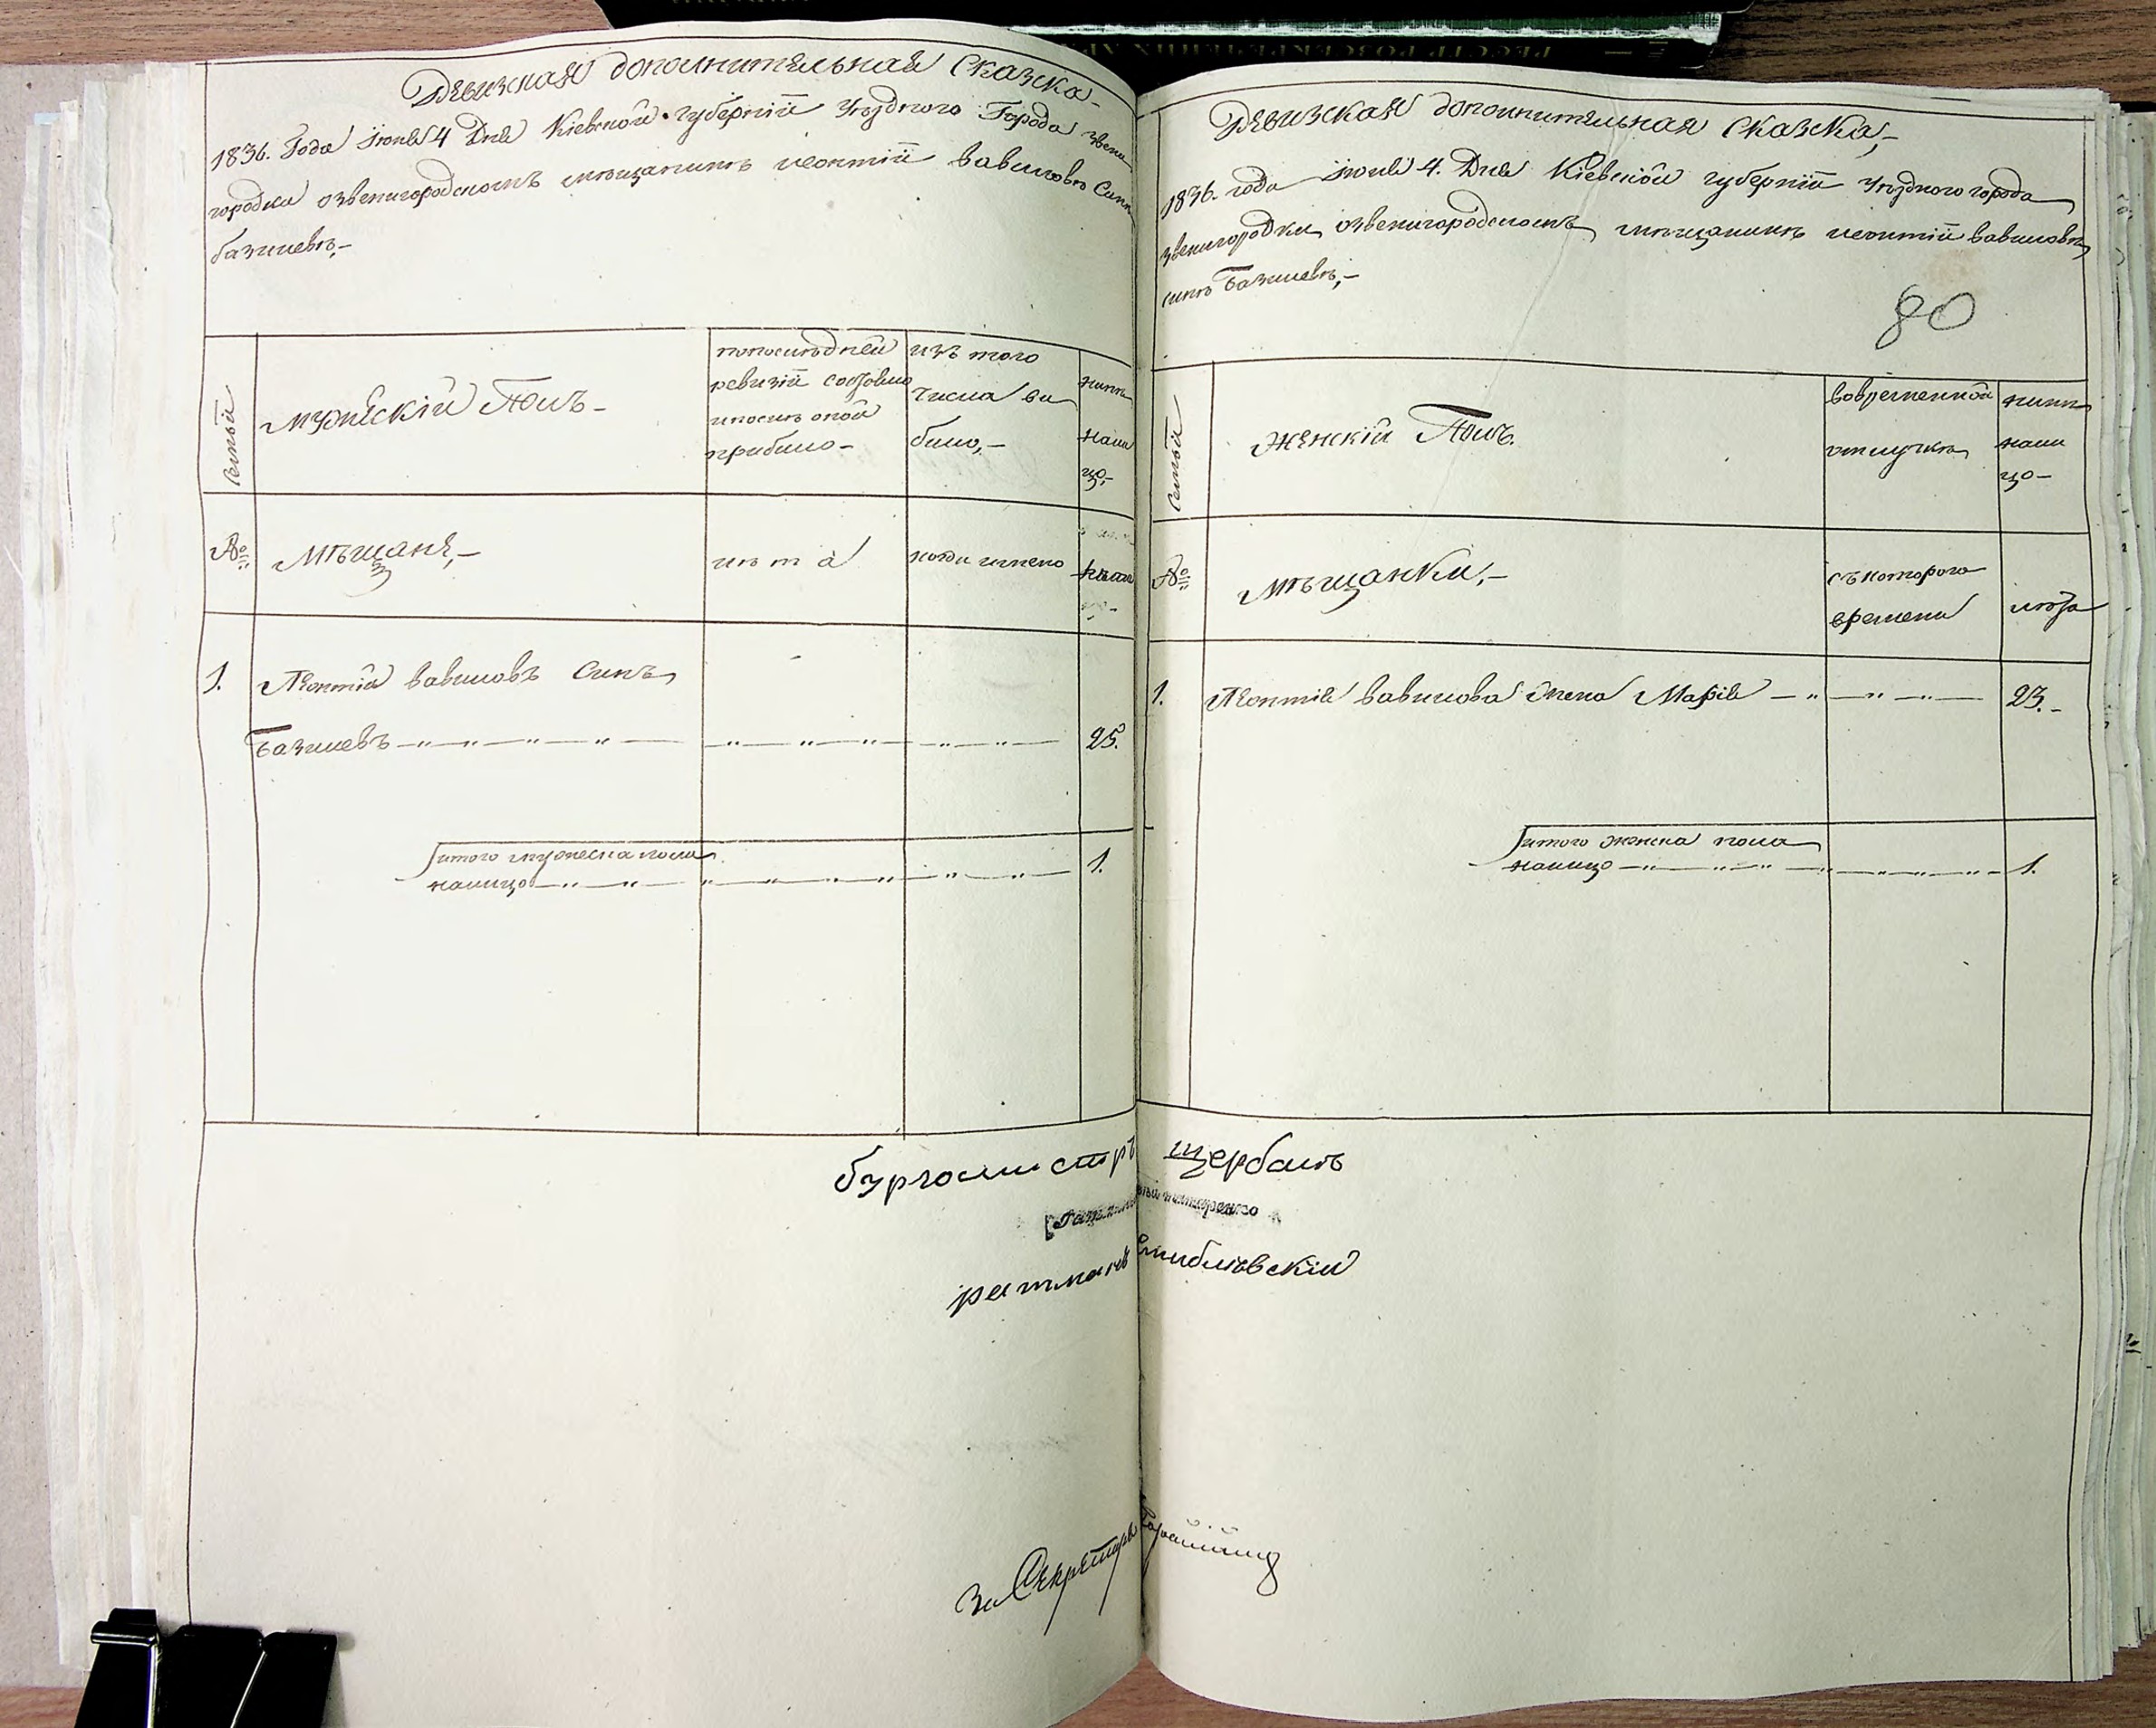 Ревизская дополнительная Сказка
1836. Года Іюня 4 Дня Кіевской губерніи Уѣздного Города звени
городки озвенигородскомъ мѣщанинѣ леонтій вавиловъ Синъ
базилевъ,
Семьи
мужескій Полъ
попослѣдней ревизіи состояло ипослѣ оной прибило
изъ того числа ви било,
нинѣ нали цо,
№
Мѣщане,
лѣта
когда имено
1.
Леонтій вавиловъ Синъ
Базилевъ
25.
итого мужеска пола
налицо
1.
Ревизская дополнительная Сказка,
1836. года Іюня 4. Дня Кіевской губерніи Уѣздного города
звенигородки озвенигородскомъ мѣщанинѣ леонтій вавиловъ
синъ Базилевъ,
80
Семьи
Женскій Полъ.
вовременной отлучкѣ
нинѣ нали цо
№
Мѣщанки,
съкоторого времени
лѣта
1.
Леонтія вавилова жена Марія
23.
итого женска пола
налицо
1.
бургомистръ щербакъ
ратманъ
За Секретаря